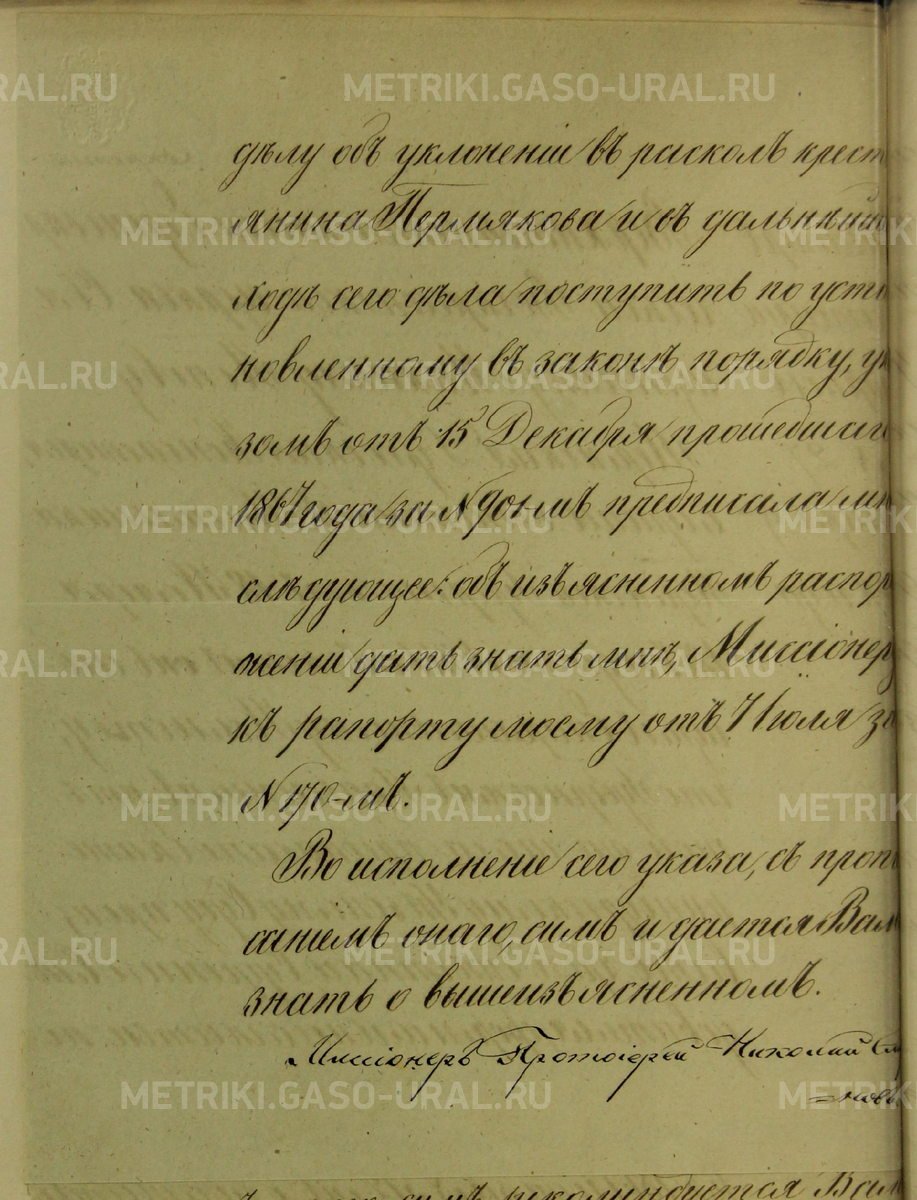 дѣлу объ уклоненіи въ расколъ крест
янина Пермякова и въ дальнѣй
ходѣ сего дѣла поступить по уста
новленному въ законѣ порядку, ук
зомъ отъ 15 Декабря прошедшаго
1867 года за № 901-мъ предписала мн
слѣдующее: объ изъясненномъ распор
женіи дать знать мнѣ, Миссіонеру
къ рапорту моему отъ 7 Іюля за
№ 170-мъ.
Во исполненіе сего указа, съ пропи
саніемъ онаго, симъ и дается Вам
знать о вышеизъясненномъ.
Миссіонеръ Протоіерей Николай
=новъ
симъ рекомендуется Вам
METRIKI.GASO-URAL.RU